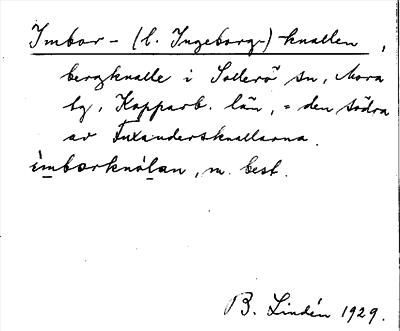 Imbor- (l. Ingeborg-) knallen,
bergknalle i Sollerö sn, Mora
tg, Kopparb. län, = den södra
av Tuxandersknallarna.
ìmborknólan, m. best.
B. Lindén 1929.